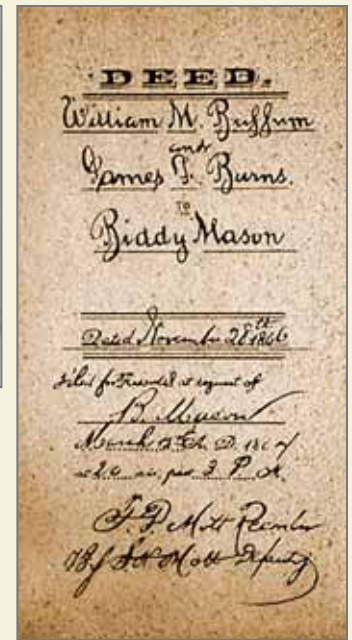 DEED.
William M. Buffum
and
James F. Burns.
TO
Biddy Mason
Dated November 28th 1866
Filed for Record at request of
B. Mason
March A. D. 186
at 20 min. past 3 P. M.
T. D. Mott Recorder
By Mott Deputy